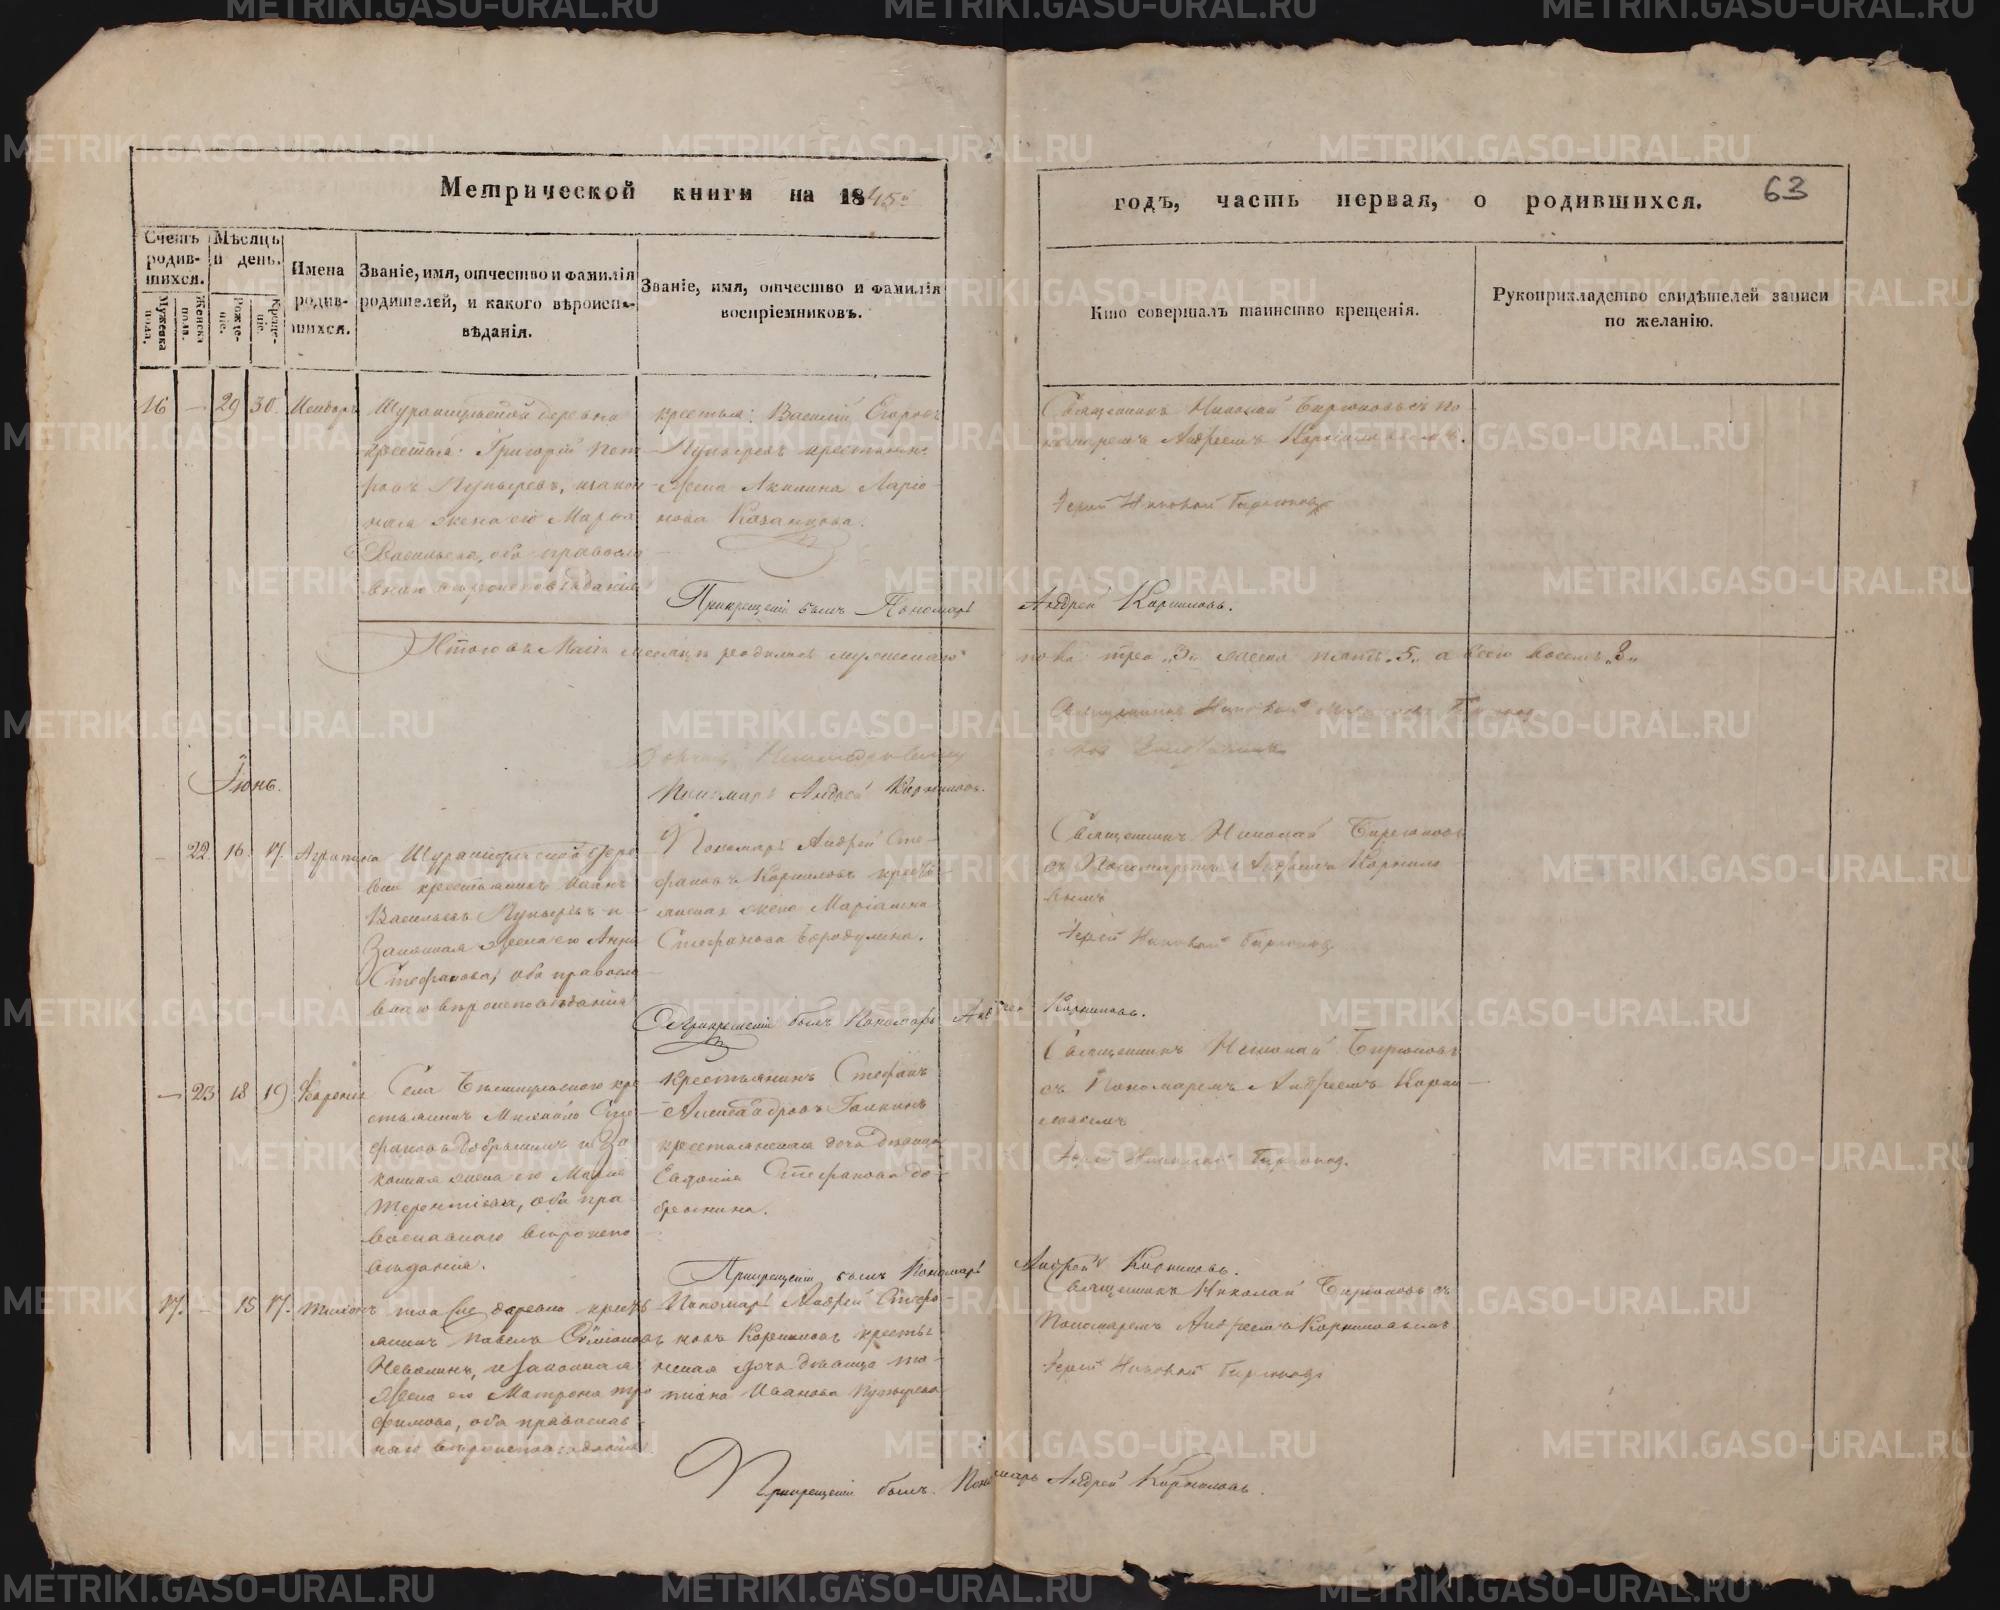 Метрической книги на 1845й
годъ, часть первая, о родившихся.
63
Счетъ родив-шихся.
Мѣсяцъ и день.
Мужеска пола.
Женска пола.
Рожде-ніе.
Креще-ніе.
Имена родив-шихся.
Званіе, имя, отчество и фамилія
родителей, и какого вѣроиспо-
вѣданія.
Званіе, имя, отчество и фамилія
воспріемниковъ.
Кто совершалъ таинство крещенія.
Рукоприкладство свидѣтелей записи
по желанію.
16 — 29 30.
деревни
Григорій Пет-
ровъ Пупыревъ, и закон-
ная жена его Марья
Васильева, оба правосла
внаго вѣроисповѣданія
крестья: Василій Егоровъ
Пупыревъ крестьянск:
жена Акилина Ларіо-
нова Казанцова.
Священникъ Николай Бирюковъ съ по-
номаремъ Андреемъ Корниловымъ.
Іерей Николай Бирюковъ
При крещеніи былъ Пономарь Андрей Корниловъ.
Итого въ Маіѣ месяцѣ родилось мужескаго
пола три „3„ женска пять „5„ а всего восемь „8„
Священникъ Николай
Пономарь Андрей Корниловъ.
Іюнь.
— 22 16 17. Агрипина
крестьянинъ Иванъ
Васильевъ Пупыревъ и
Законная жена его Анна
Стефанова, оба правосла
внаго вѣроисповѣданія
Пономарь Андрей Сте-
фановъ Корниловъ крестья-
нская жена Маріамна
Стефанова Бородулина.
Священникъ Николай Бирюковъ
съ Пономаремъ Андреемъ Корнило-
вымъ
Іерей Николай Бирюковъ
При крещеніи былъ Пономарь Андрей Корниловъ.
— 23 18 19
Села кре
стьянинъ Михайло Сте-
фановъ Добрынинъ и За
конная жена его Марья
Терентіева, оба пра-
вославнаго вѣроиспо
вѣданія.
Крестьянинъ Стефанъ
Александровъ Галкинъ
крестьянская дочь девица
Евдокія Стефанова До-
брынина.
Священникъ Николай Бирюковъ
съ Пономаремъ Андреемъ Корни-
ловымъ
Іерей Николай Бирюковъ.
При крещеніи былъ Пономарь Андрей Корниловъ.
17. — 15 17. Тихонъ
деревни крестъ
янинъ Павелъ Симіоновъ
Неволинъ, и законная
жена его Матрона Тро
фимова, оба православ-
наго вѣроисповѣданія.
Пономарь Андрей Стефа-
новъ Корниловъ кресть:
нская дочь девица Та-
тіана Иванова Пупырева
Священникъ Николай Бирюковъ съ
Пономаремъ Андреемъ Корниловымъ
Іерей Николай Бирюковъ
При крещеніи былъ Пономарь Андрей Корниловъ.
METRIKI.GASO-URAL.RU